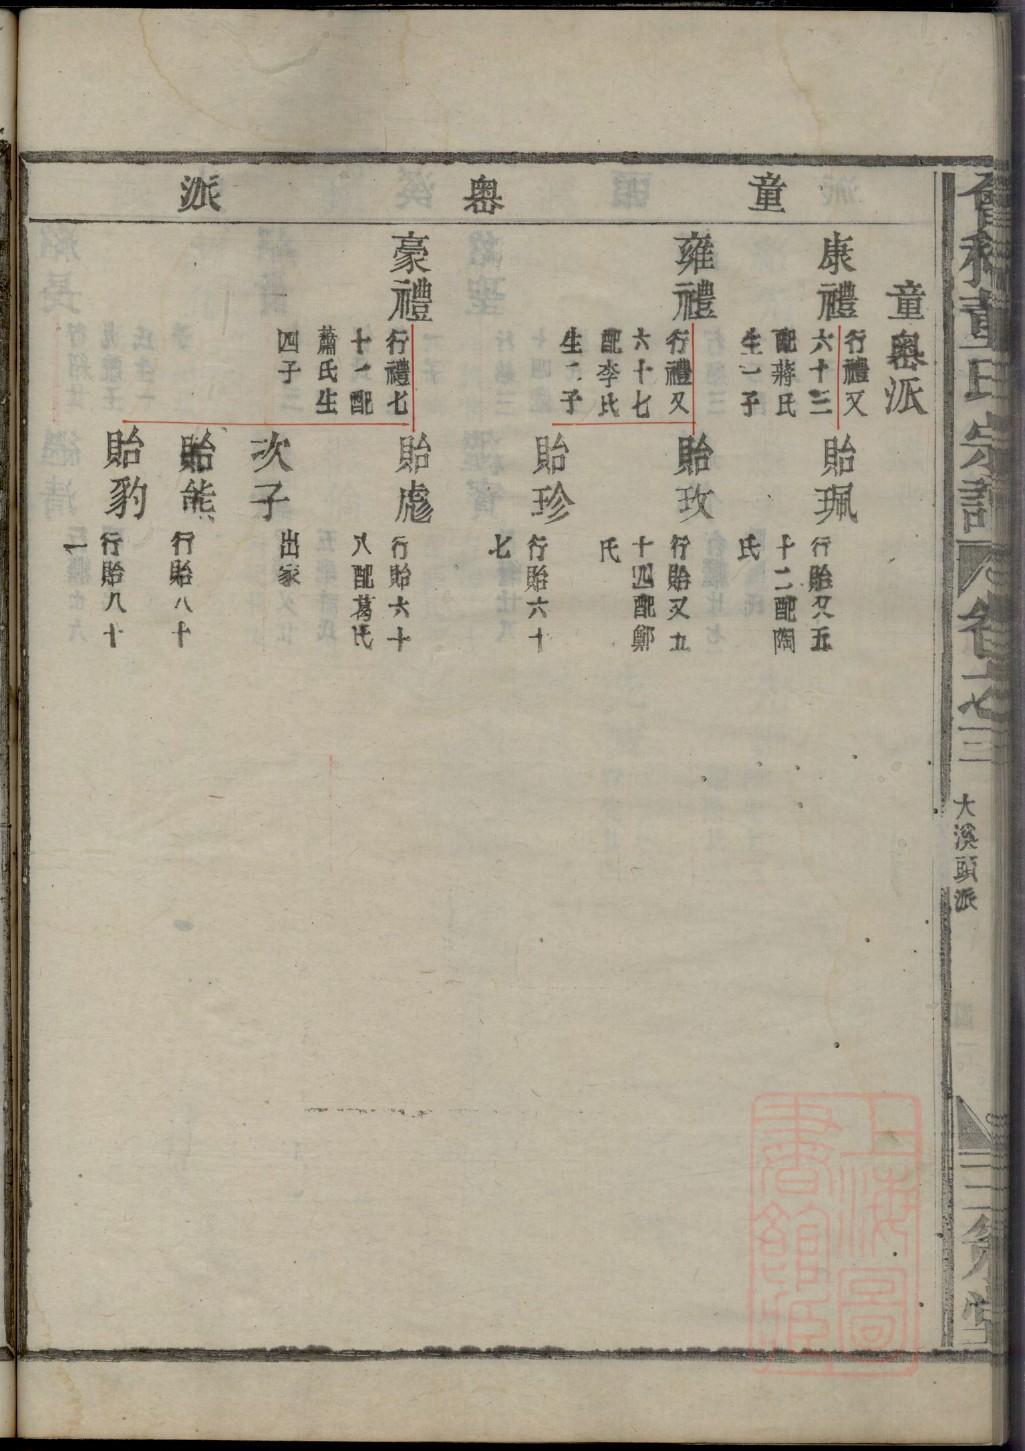 童嶴派
童嶴派
康禮
行禮又
六十三
配蔣氏
生一子
貽珮
行貽又五
十二配陶
氏
雍禮
行禮又
六十七
配李氏
生二子
貽玫
行貽又五
十四配鄭
氏
貽珍
行貽六十
七
豪禮
行禮七
十一配
蕭氏生
四子
貽彪
行貽六十
八配葛氏
次子
出家
貽熊
行貽八十
貽豹
行貽八十
一
童氏宗譜
卷之三
大溪頭派
上海圖
書館藏